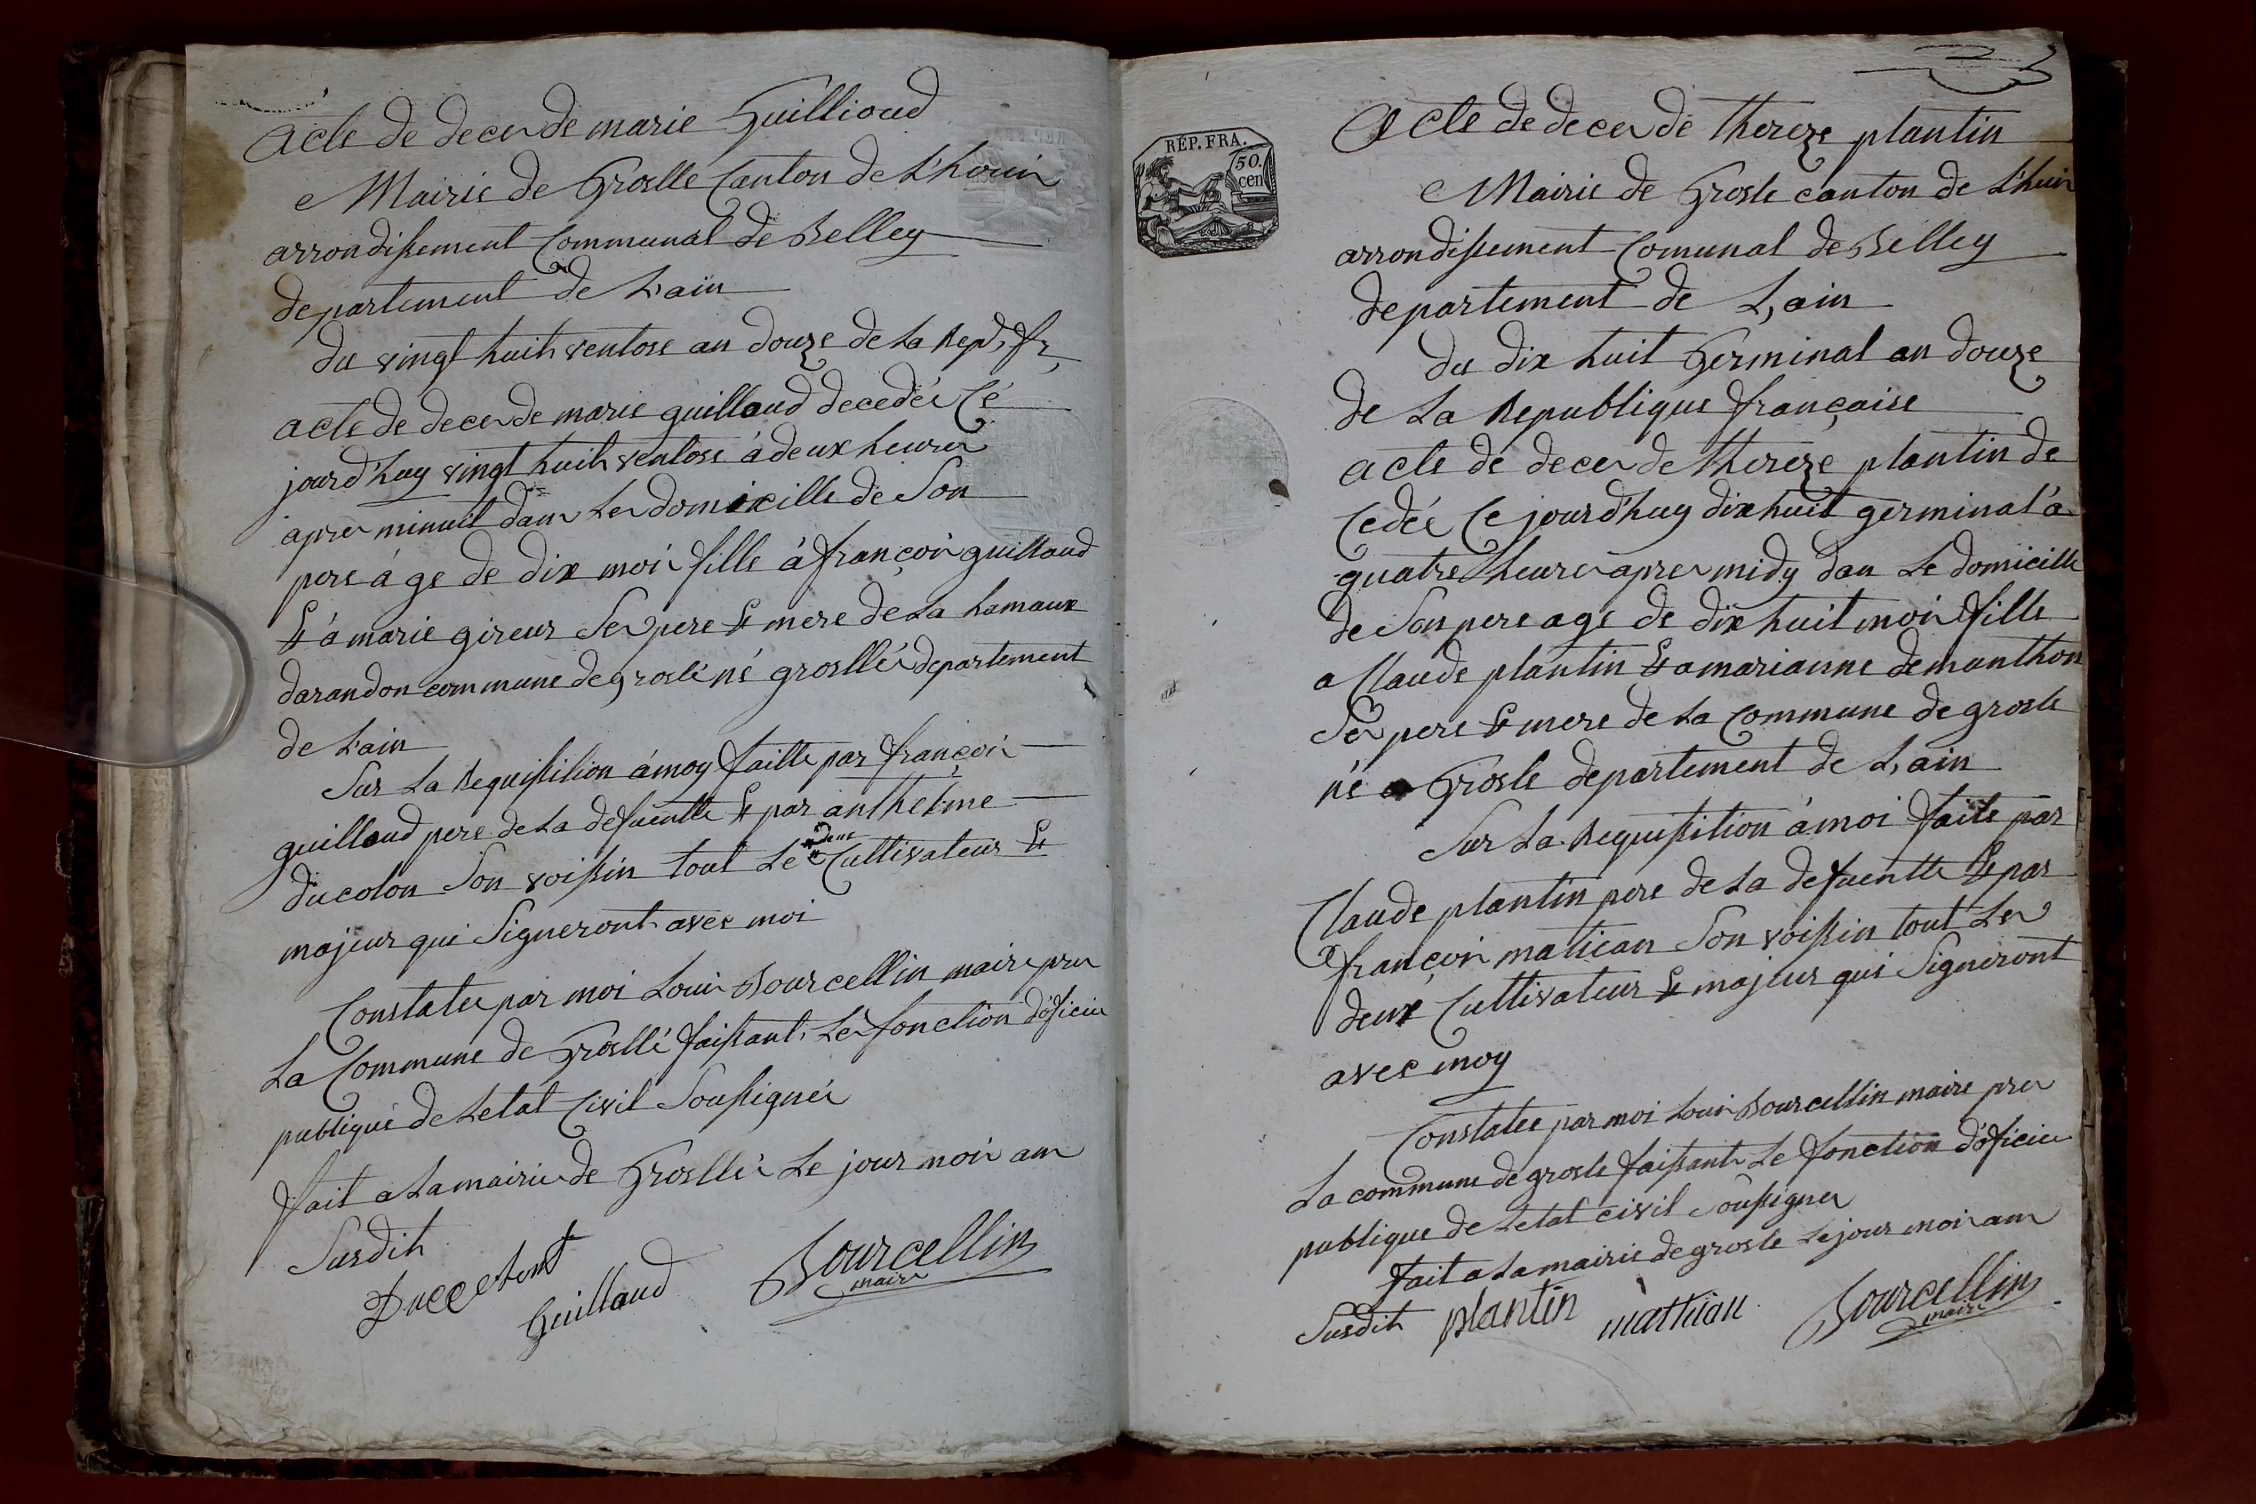 Acte de deces de marie Guillioud
Mairie de Groslle Canton de L'houis
arrondissement Communal de Belley
departement de L'ain
du vingt huit ventose an douze de la Rep. fr.
acte de deces de marie guilloud decedée Ce
jourd'huy vingt huit ventose à deux heures
apres minuit dans les domicille de Son
pere à ge de dix mois fille à françois guilloud
& à marie gireur Ses pere & mere de la hamaux
darandon commune de groslé né grosllé departement
de L'ain
Sur La Requisition à moy faitte par françois
guilloud pere de la defuentte & par anthelme
ducolon Son voissin tout Les deux Cultivateur &
majeur qui Signeront avec moi
Constatée par moi Louis Bourcellin maire pour
La Commune de Grosllé faissant Les fonction d'oficier
publique de Letat Civil Soussignés
fait a La mairie de Grosllé Le jour mois an
Susdit
Guilloud
Bourcellin
maire
RÉP. FRA.
50.
cen
Acte de deces de thereze plantin
Mairie de Grosle canton de L'huis
arrondissement Comunal de Belley
departement de L'ain
du dix huit Germinal an douze
de La Republique française
acte de deces de thereze plantin de
Cedée Ce jourd'huy dix huit germinal à
quatre heures apres midy dans Le domicille
de Son pere age de dix huit mois fille
a Claude plantin & a marianne demanthon
Ses pere & mere de La Commune de grosle
né a Grosle departement de L'ain
Sur La Requisition à moi faite par
Claude plantin pere de La defuentte & par
françois matican Son voissin tout Les
deux Cultivateur & majeur qui Signeront
avec moy
Constatée par moi Louis Bourcellin maire pour
La commune de grosle faissant Les fonction d'oficier
publique de Letat civil Soussigner
fait a La mairie de grosle Le jour mois an
Susdit plantin mathiau Bourcellin
maire